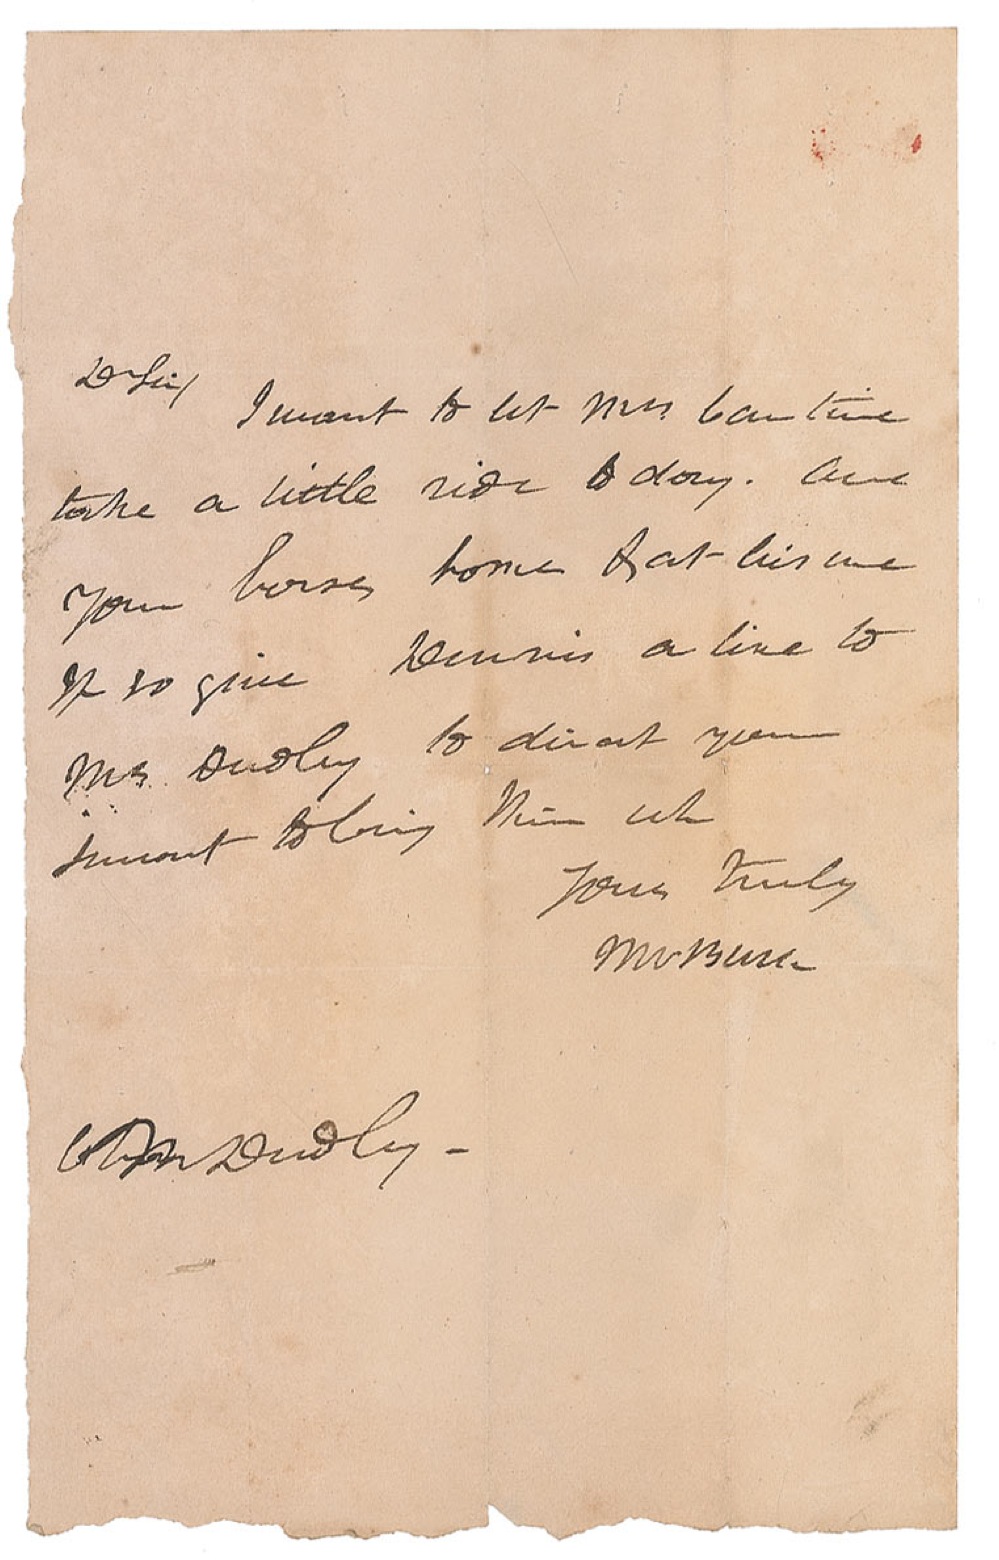 D Sir/
I want to let Mrs Cantine
take a little ride to day. Are
your horses home & at leisure
If so give Dennis a line to
Mrs Dudley to direct your
servant to bring them up
Yours Truly
MVBuren
Dudley -